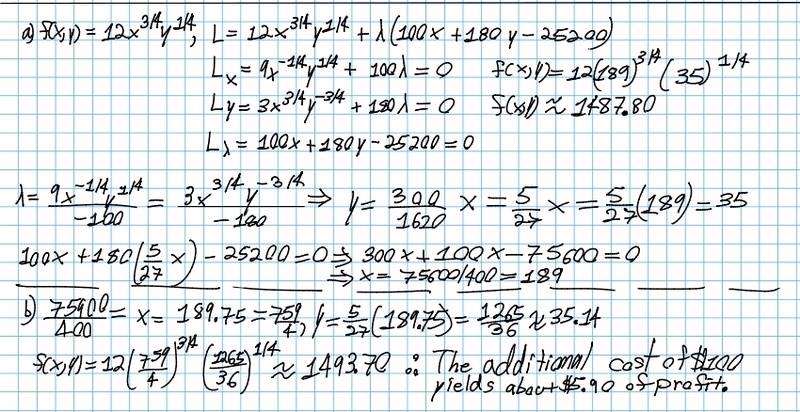 a) f(x,y) = 12x^{3/4}y^{1/4}, L = 12x^{3/4}y^{1/4} + λ(100x + 180y - 25200)
L_x = 9x^{-1/4}y^{1/4} + 100λ = 0 f(x,y) = 12(189)^{3/4}(35)^{1/4}
L_y = 3x^{3/4}y^{-3/4} + 180λ = 0 f(x,y) ≈ 1487.80
L_λ = 100x + 180y - 25200 = 0
λ = \frac{9x^{-1/4}y^{1/4}}{-100} = \frac{3x^{3/4}y^{-3/4}}{-180} ⇒ y = \frac{300}{1620} x = \frac{5}{27}x = \frac{5}{27}(189) = 35
100x + 180(\frac{5}{27}x) - 25200 = 0 ⇒ 300x + 100x - 75600 = 0
⇒ x = 75600/400 = 189
b) \frac{75900}{400} = x = 189.75 = \frac{759}{4}, y = \frac{5}{27}(189.75) = \frac{1265}{36} ≈ 35.14
f(x,y) = 12(\frac{759}{4})^{3/4}(\frac{1265}{36})^{1/4} ≈ 1493.70 ∴ The additional cost of $100
yields about $5.90 of profit.